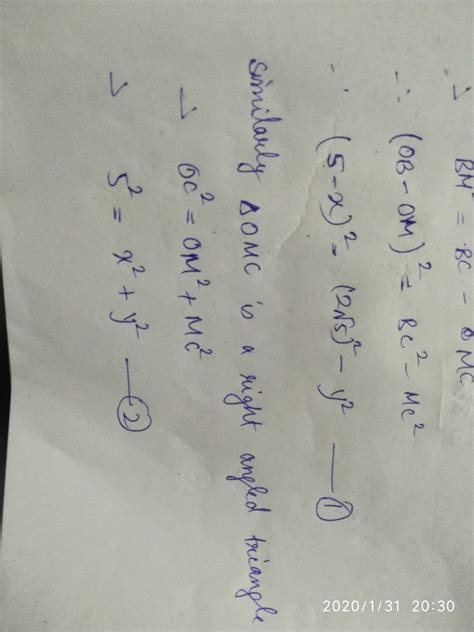 → BM² = BC² - MC²
∴ (OB - OM)² = BC² - MC²
∴ (5-x)² = (2√5)² - y² —①
Similarly ΔOMC is a right angled triangle
→ OC² = OM² + MC²
→ 5² = x² + y² —②
2020/1/31 20:30